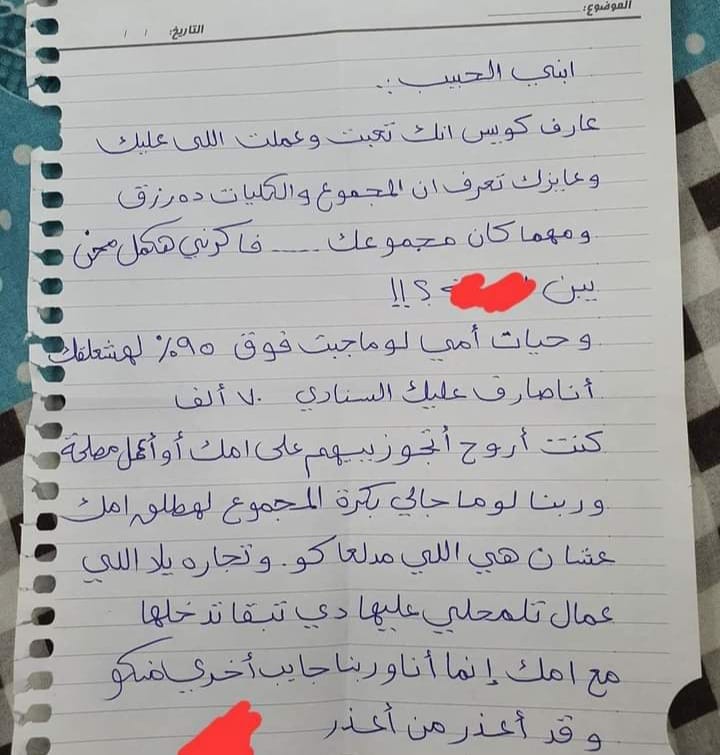 الموضوع:
التاريخ: / /
ابني الحبيب ..
عارف كويس انك تعبت وعملت اللى عليك
وعايزك تعرف ان المجموع والكليات ده رزق
ومهما كان مجموعك .... فاكرني هكمل صح
يبن ؟!!
وحيات أمي لو ما جبت فوق ٩٥% لهشعلقك
أنا صارف عليك السنادي ٧٠ ألف
كنت أروح أتجوز بيهم على امك أو أعمل مصلحة
وربنا لو ما جالي بكرة المجموع لهطلق امك
عشان هي اللي مدلعاكو. وتجاره يلا اللي
عمال تلمحلي عليها دي تبقا تدخلها
مع امك إنما أنا وربنا جايب أخري منكو
وقد أعذر من أعذر